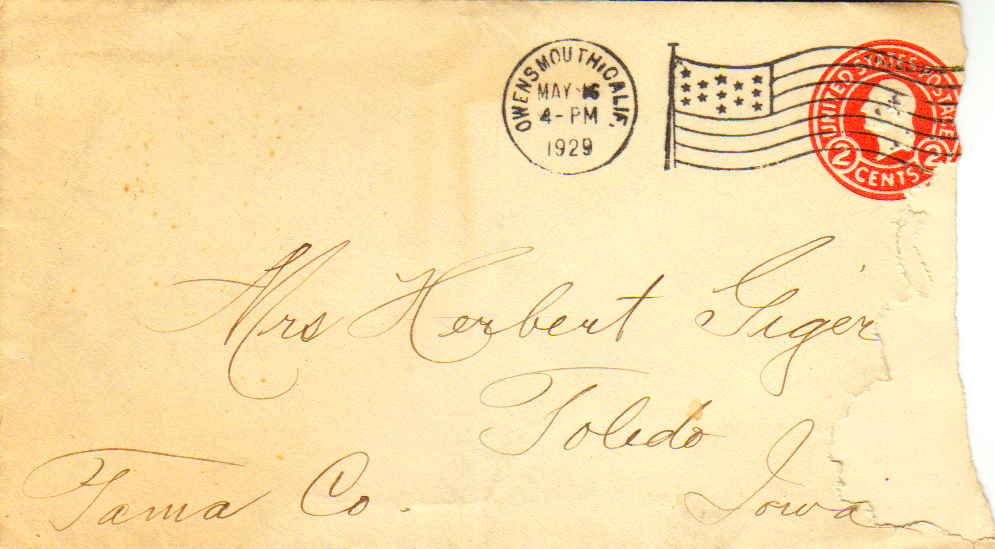 OWENSMOUTH, CALIF.
MAY 16
4-PM
1929
UNITED STATES POSTAGE
2 CENTS 2
Mrs Herbert Giger
Toledo
Tama Co. Iowa